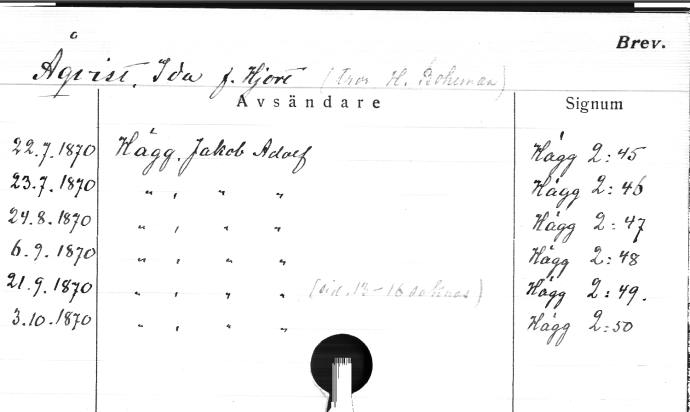 Å
Brev.
Åqvist, Ida f. Hjort (tror H. Boheman)
Avsändare Signum
22.7.1870 Hägg, Jakob Adolf Hägg 2:45
23.7.1870 " , " " Hägg 2:46
24.8.1870 " , " " Hägg 2:47
6.9.1870 " , " " Hägg 2:48
21.9.1870 " , " " (sid. 13-16 saknas) Hägg 2:49.
3.10.1870 " , " " Hägg 2:50